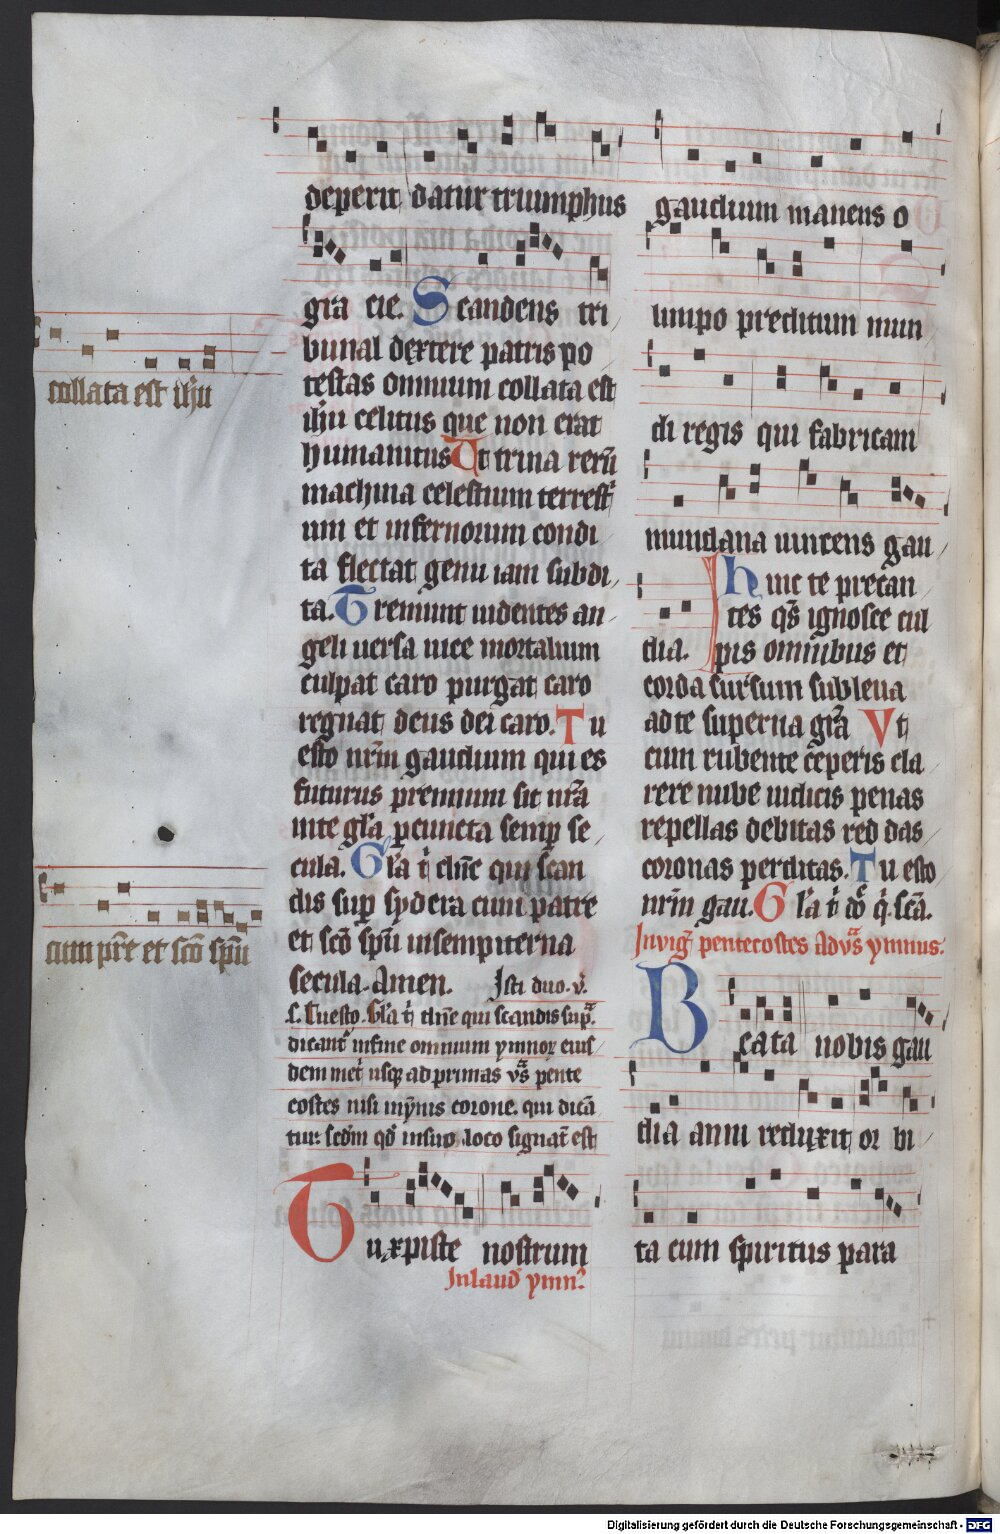 deperit datur triumphus
gr̄a cie. Scandens tri
bunal dextere patris po
testas omnium collata est
ih̄u celitus que non erat
humanitus Ut trina rerū
machina celestium terrestr̄i
um et infernorum condi
ta flectat genu iam subdi
ta. Tremunt uidentes an
geli uersa uice mortalium
culpat caro purgat caro
regnat deus dei caro. Tu
esto nr̄m gaudium qui es
futurus premium sit nr̄a
inte gl̄a p cuncta semp se
cula. Gl̄a t̄ dn̄e qui scan
dis sup sydera cum patre
et sc̄o sp̄u insempiterna
secula. Amen. Isti duo. v̄.
s. Tuesto. Gl̄a t̄ dn̄e qui scandis sup̄a.
dicant̄ infine omnium ymnoꝝ eius
dem met̄i usqꝫ ad primas vs̄ pente
costes nisi inymnis corone. qui dicā
tur: sc̄dm qd̄ insuo loco signat̄ est
Tu xpiste nostrum
In laud̄ ymn̄.
collata est ih̄u
cum pr̄e et sc̄o sp̄u
gaudium manens o
limpo preditum mun
di regis qui fabricam
mundana uincens gau
dia. Hinc te precan
tes qs̄ ignosce cul
pis omnibus et
corda sursum subleua
ad te superna gr̄a Vt
cum rubente ceperis cla
rere nube iudicis penas
repellas debitas red das
coronas perditas. Tu esto
nr̄m gau. Gl̄a t̄ dō q̄ scā.
In viḡ pentecostes Ad vs̄ ymnus.
Beata nobis gau
dia anni reduxit or bi
ta cum spiritus para
Digitalisierung gefördert durch die Deutsche Forschungsgemeinschaft - DFG